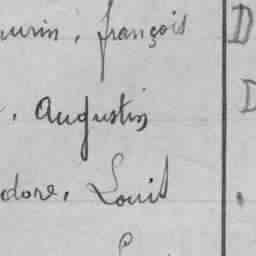 urin, françois D
, Augustin D
dore, Louis